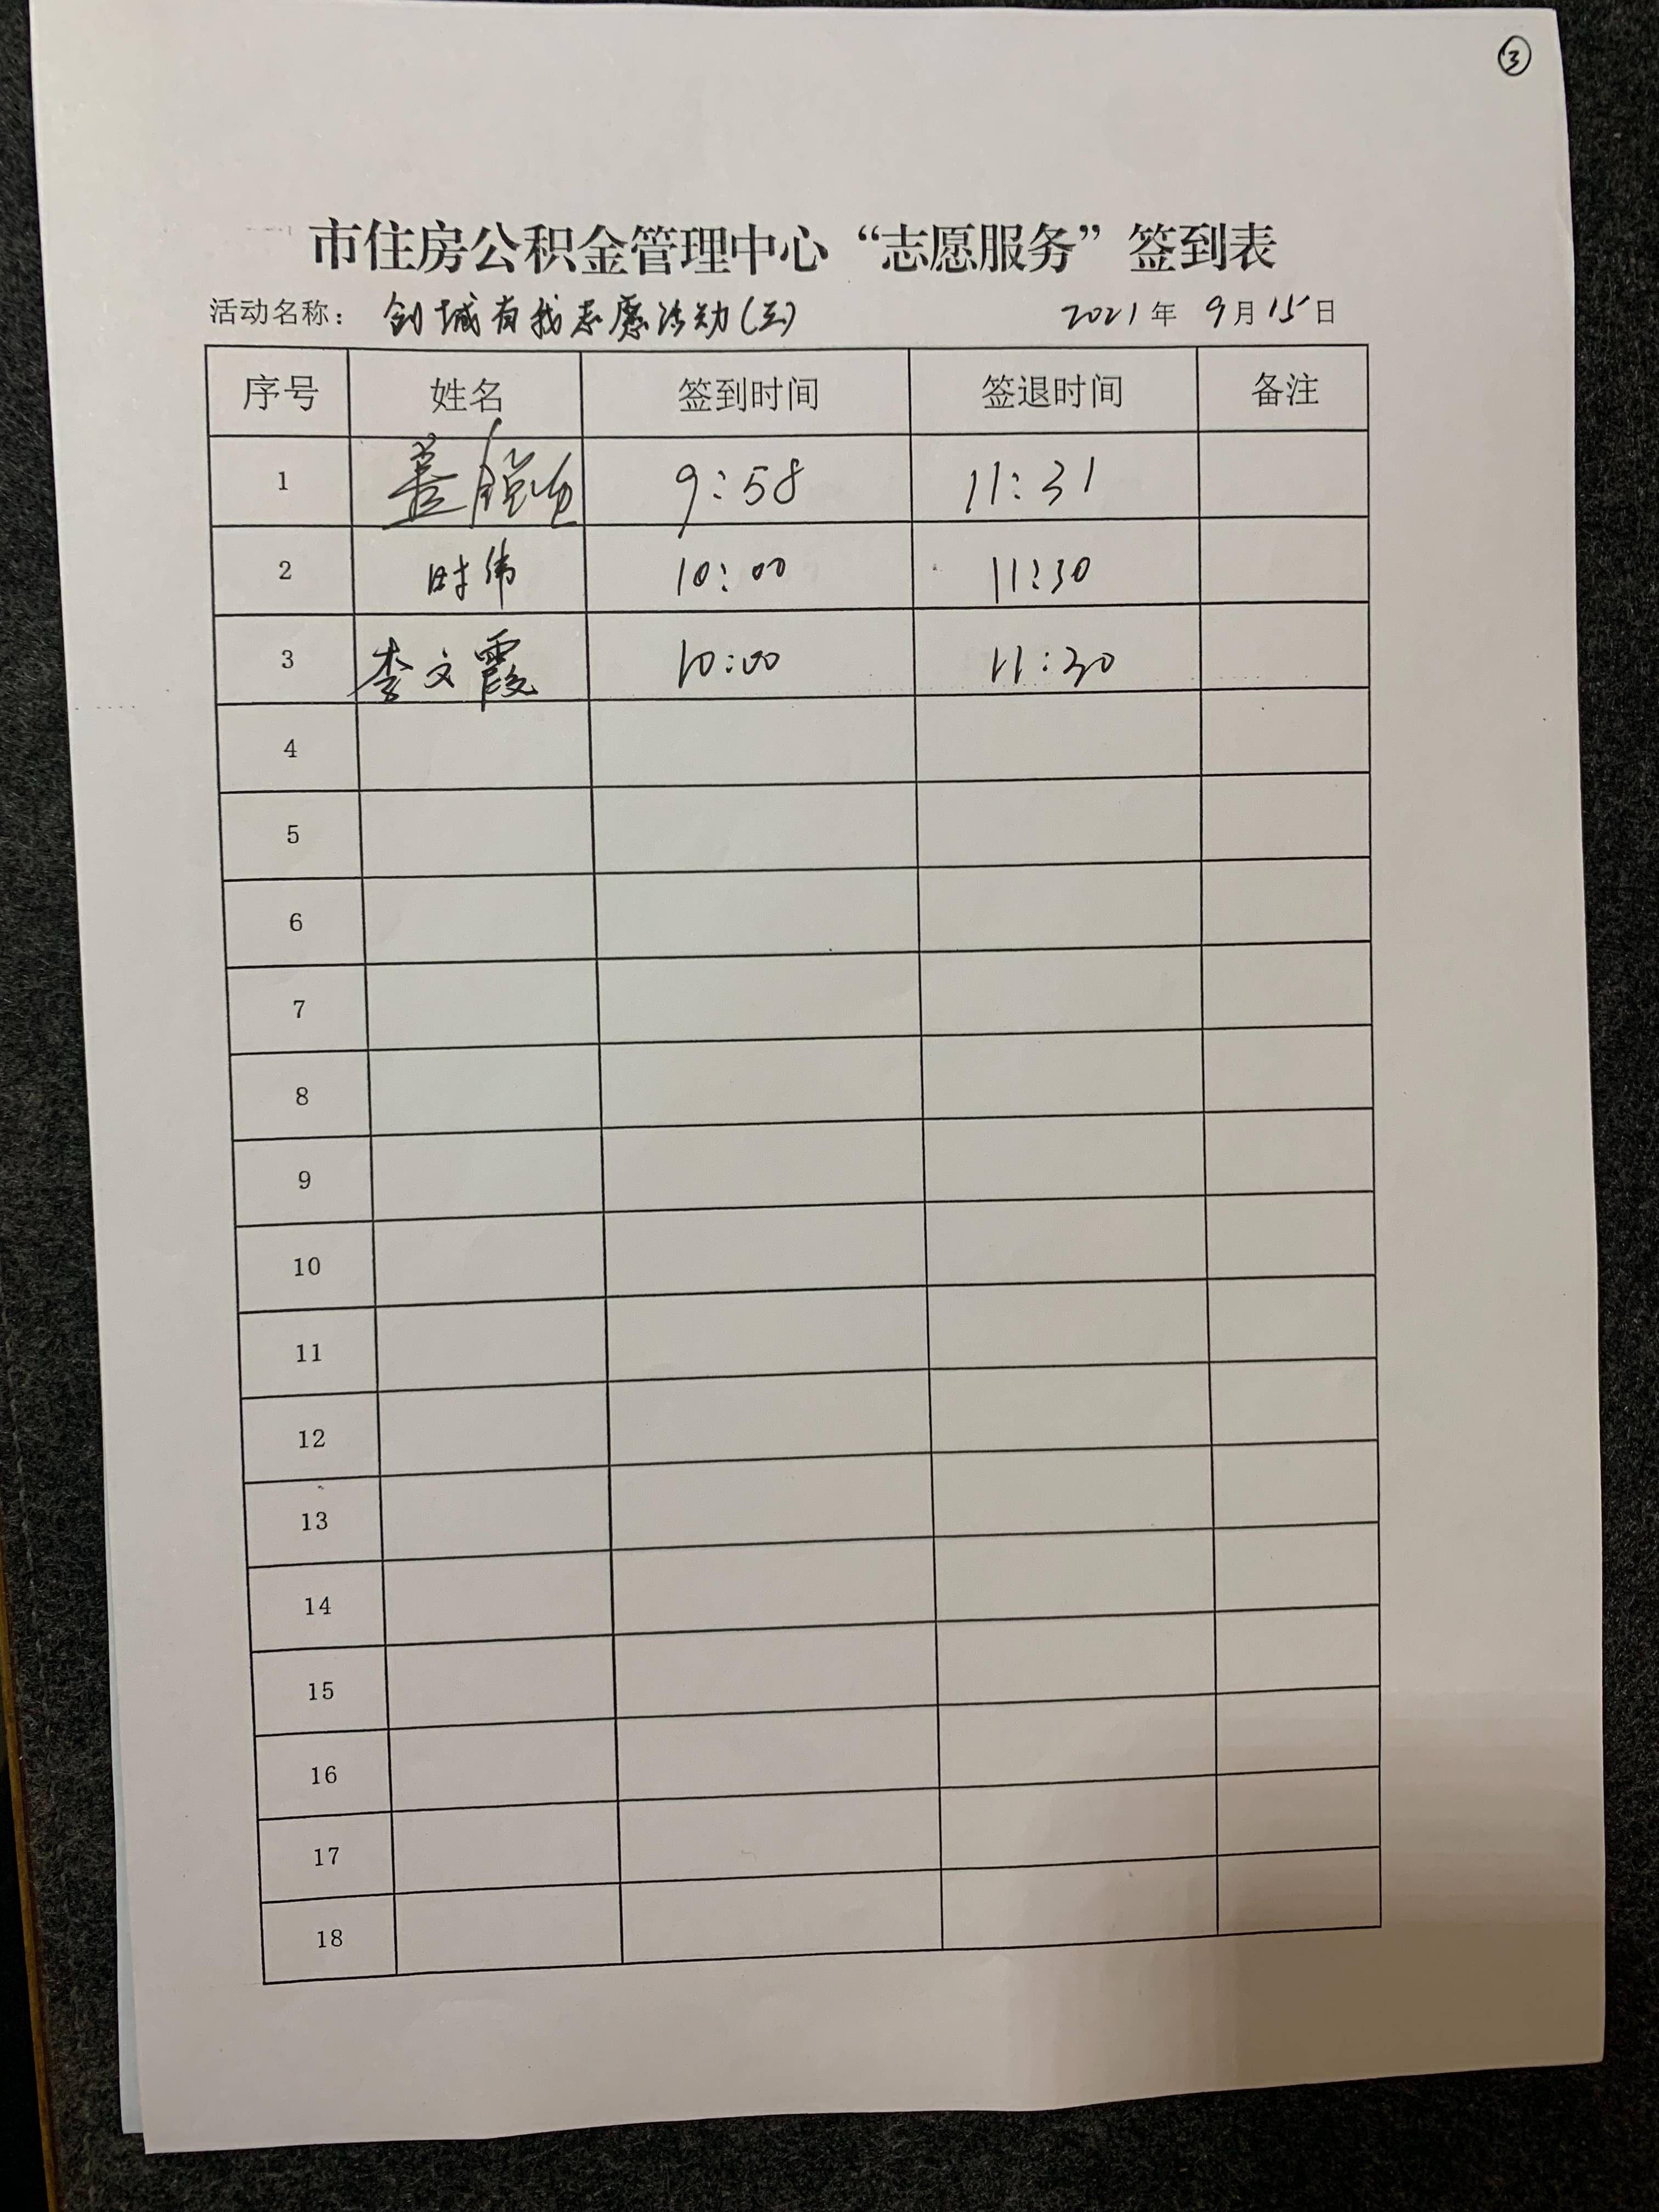 ③
市住房公积金管理中心“志愿服务”签到表
活动名称： 创城有我志愿活动(三) 2021年 9月15日
序号 姓名 签到时间 签退时间 备注
1 9:58 11:31
2 时伟 10:00 11:30
3 李文霞 10:00 11:30
4
5
6
7
8
9
10
11
12
13
14
15
16
17
18